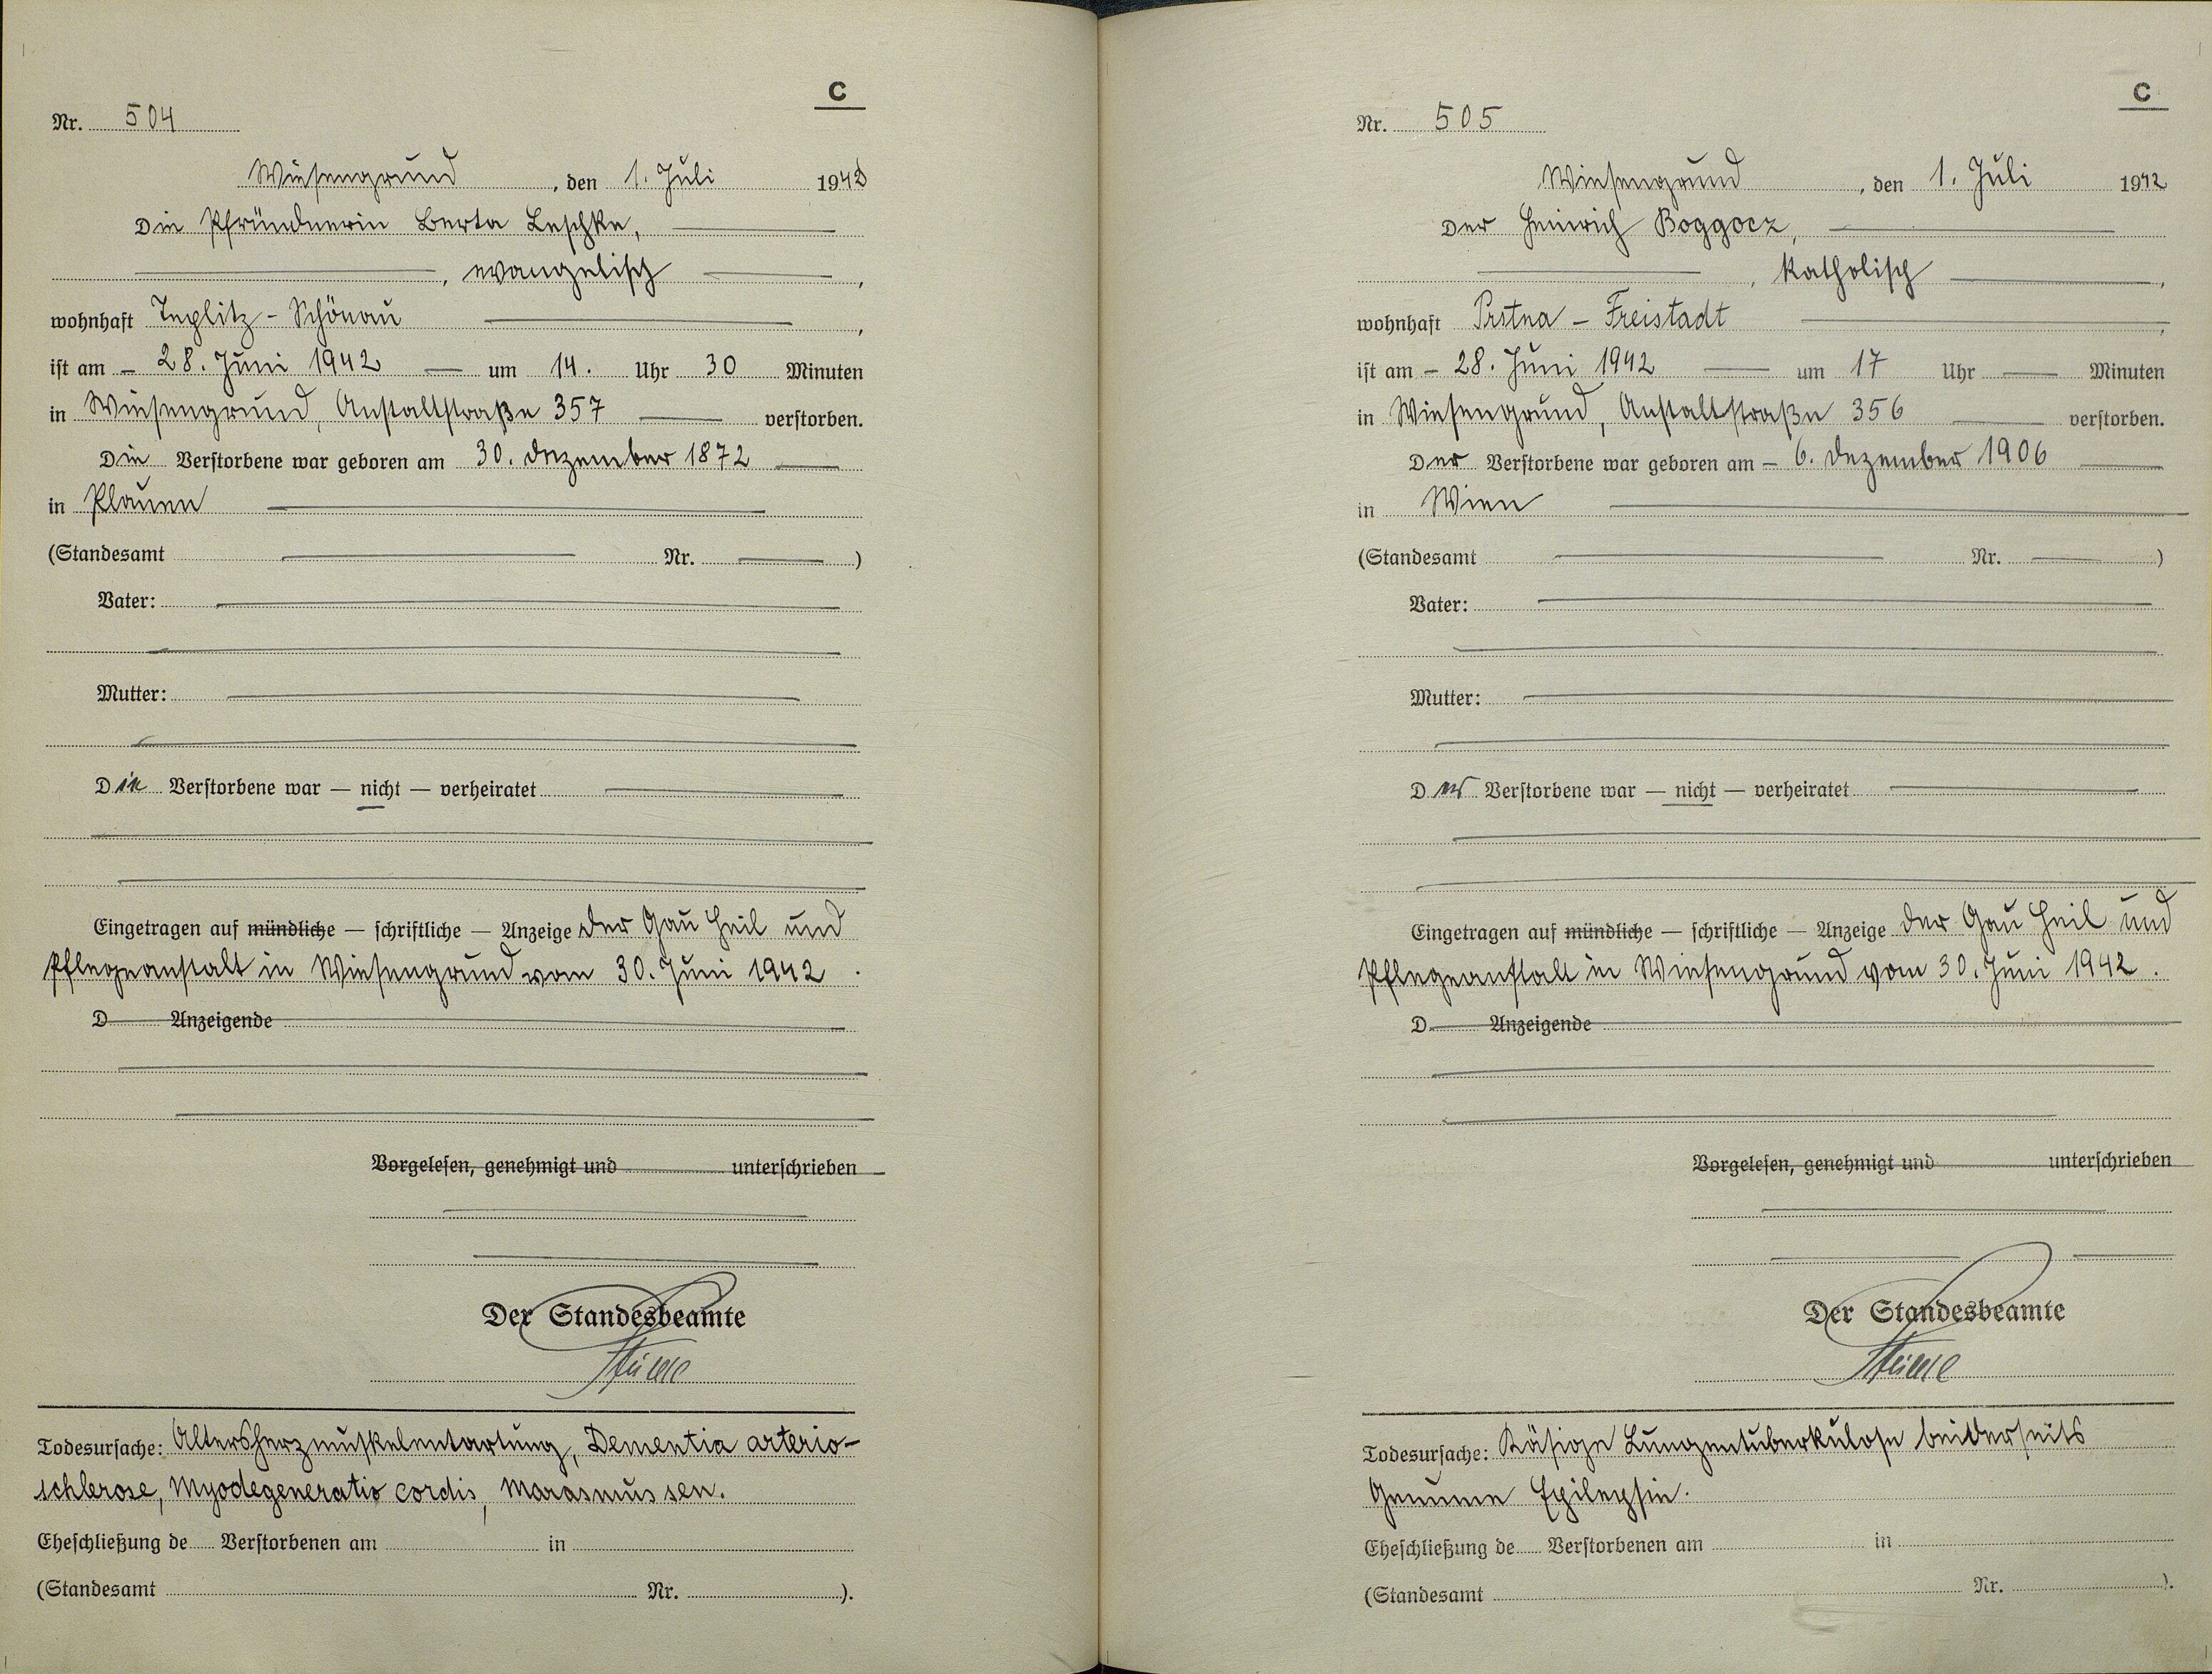 C
Nr. 504
Wiesengrund, den 1. Juli 1942
Die Pfründnerin Berta Leschke,
, evangelisch ,
wohnhaft Teplitz-Schönau ,
ist am - 28. Juni 1942 — um 14. Uhr 30 Minuten
in Wiesengrund, Anstaltstraße 357 — verstorben.
Die Verstorbene war geboren am 30. Dezember 1872 —
in Plauen
(Standesamt — Nr. — )
Vater:
Mutter:
Die Verstorbene war — nicht — verheiratet
Eingetragen auf mündliche — schriftliche — Anzeige der Gau Heil und
Pflegeanstalt in Wiesengrund vom 30. Juni 1942 .
D Anzeigende
Vorgelesen, genehmigt und unterschrieben
Der Standesbeamte
Todesursache: Altersherzmuskelentartung, Dementia arterio-
schlerose, Myodegeneratio cordis, Marasmus sen.
Eheschließung de Verstorbenen am in
(Standesamt Nr. ).
C
Nr. 505
Wiesengrund, den 1. Juli 1942
Der Heinrich Boggocz,
, katholisch ,
wohnhaft Prstna - Freistadt ,
ist am - 28. Juni 1942 — um 17 Uhr — Minuten
in Wiesengrund, Anstaltstraße 356 — verstorben.
Der Verstorbene war geboren am - 6. Dezember 1906 —
in Wien
(Standesamt — Nr. — )
Vater:
Mutter:
Der Verstorbene war — nicht — verheiratet
Eingetragen auf mündliche — schriftliche — Anzeige der Gau Heil und
Pflegeanstalt in Wiesengrund vom 30. Juni 1942 .
D Anzeigende
Vorgelesen, genehmigt und unterschrieben
Der Standesbeamte
Todesursache: Käsige Lungentuberkulose beiderseits
Genuine Epilepsie.
Eheschließung de Verstorbenen am in
(Standesamt Nr. ).